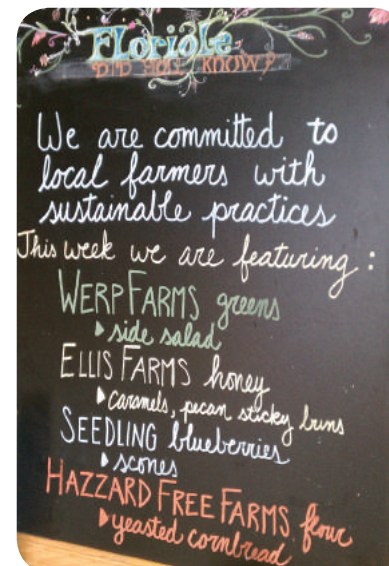 Floriole
DID YOU KNOW?
We are committed to
local farmers with
sustainable practices
This week we are featuring:
WERP FARMS greens
▸ side salad
ELLIS FARMS honey
▸ caramels, pecan sticky buns
SEEDLING blueberries
▸ scones
HAZZARD FREE FARMS flour
▸ yeasted cornbread